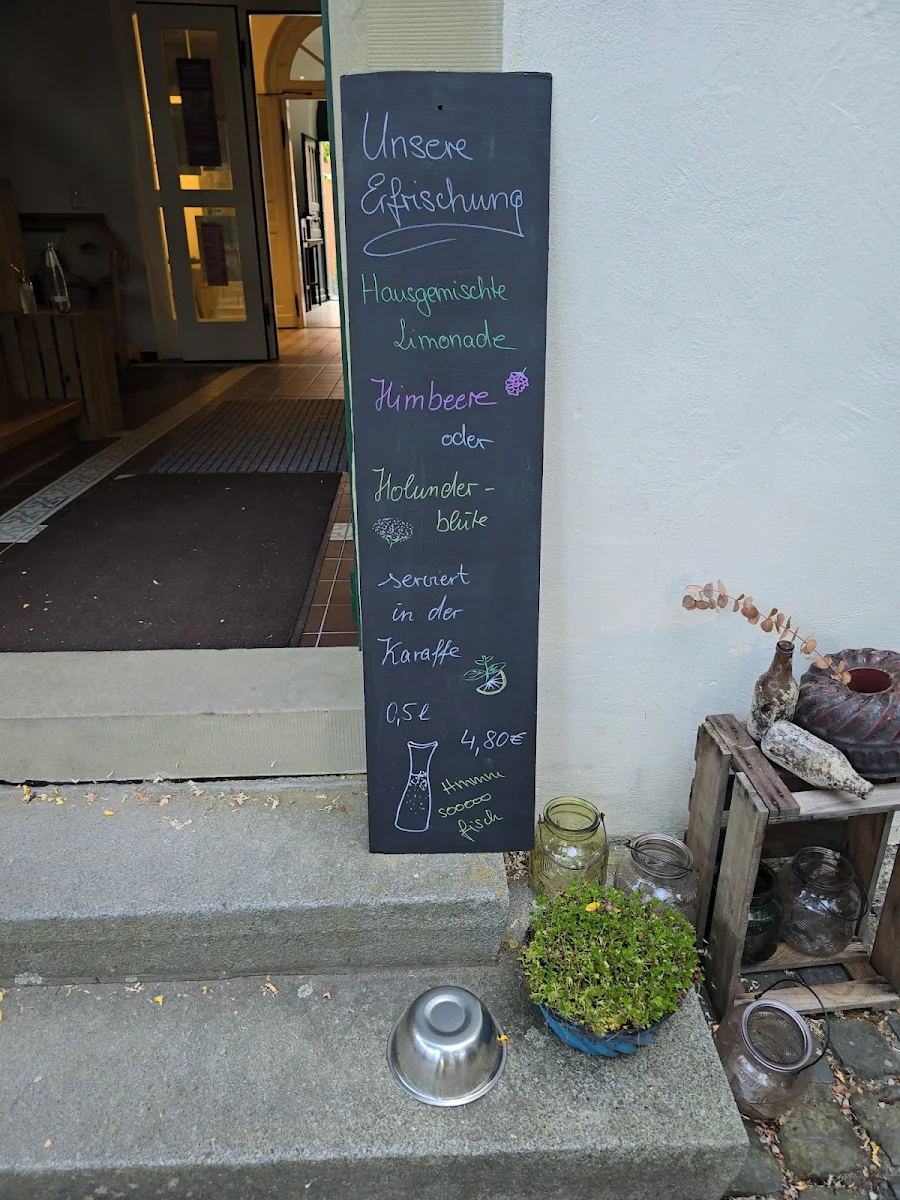 Unsere
Erfrischung
Hausgemischte
Limonade
Himbeere
oder
Holunder-
blüte
serviert
in der
Karaffe
0,5l
4,80€
Hmmm
sooooo
fisch